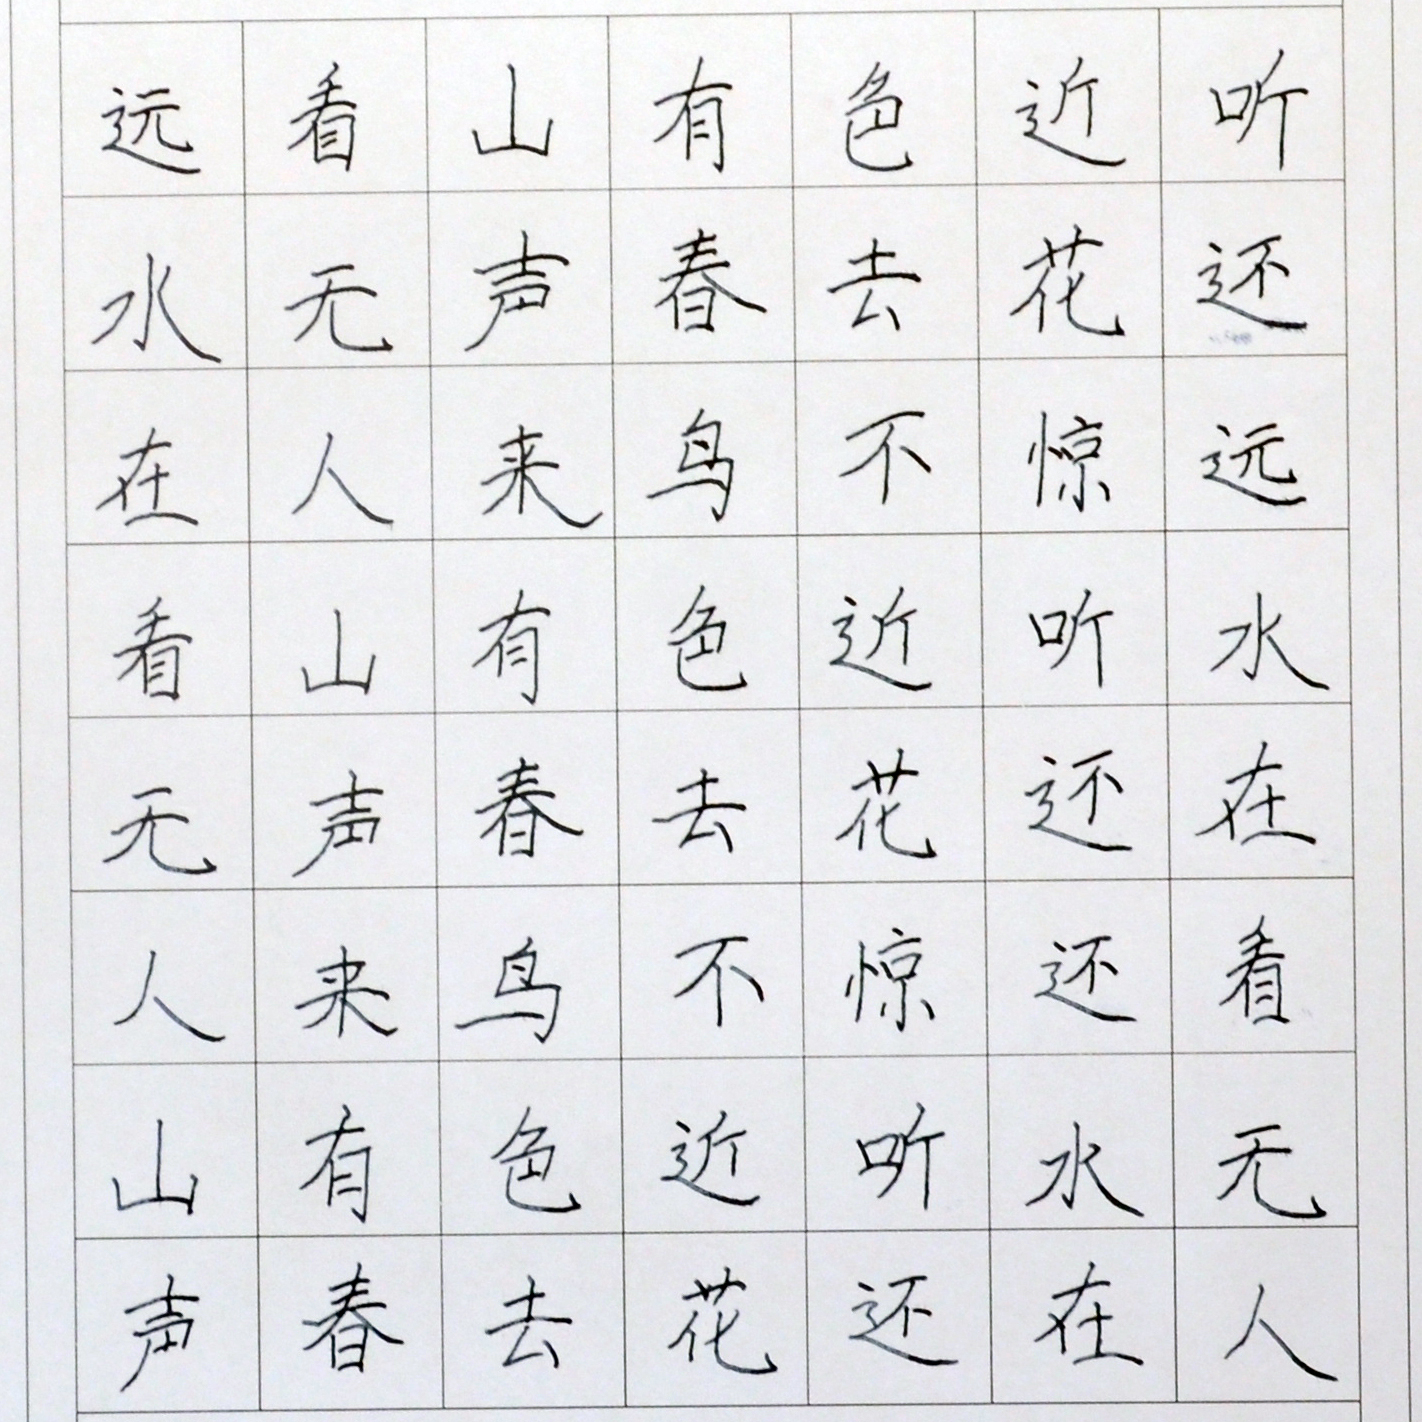 远看山有色近听
水无声春去花还
在人来鸟不惊远
看山有色近听水
无声春去花还在
人来鸟不惊还看
山有色近听水无
声春去花还在人